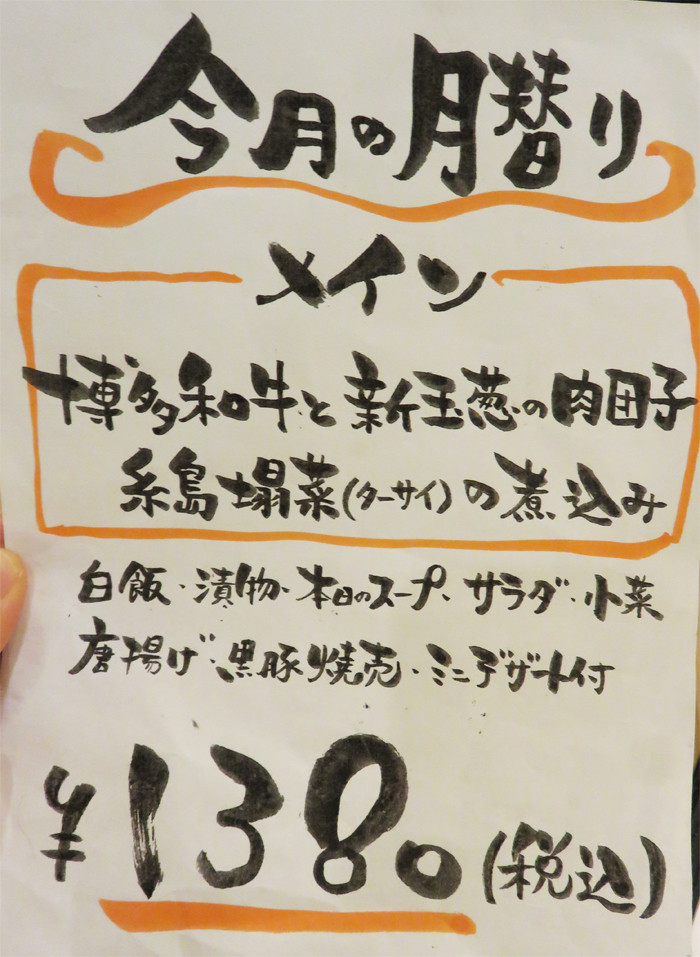 今月の月替り
メイン
博多和牛と新玉葱の肉団子
糸島塌菜(ターサイ)の煮込み
白飯・漬物・本日のスープ、サラダ・小菜
唐揚げ・黒豚焼売・ミニデザート付
¥1380(税込)